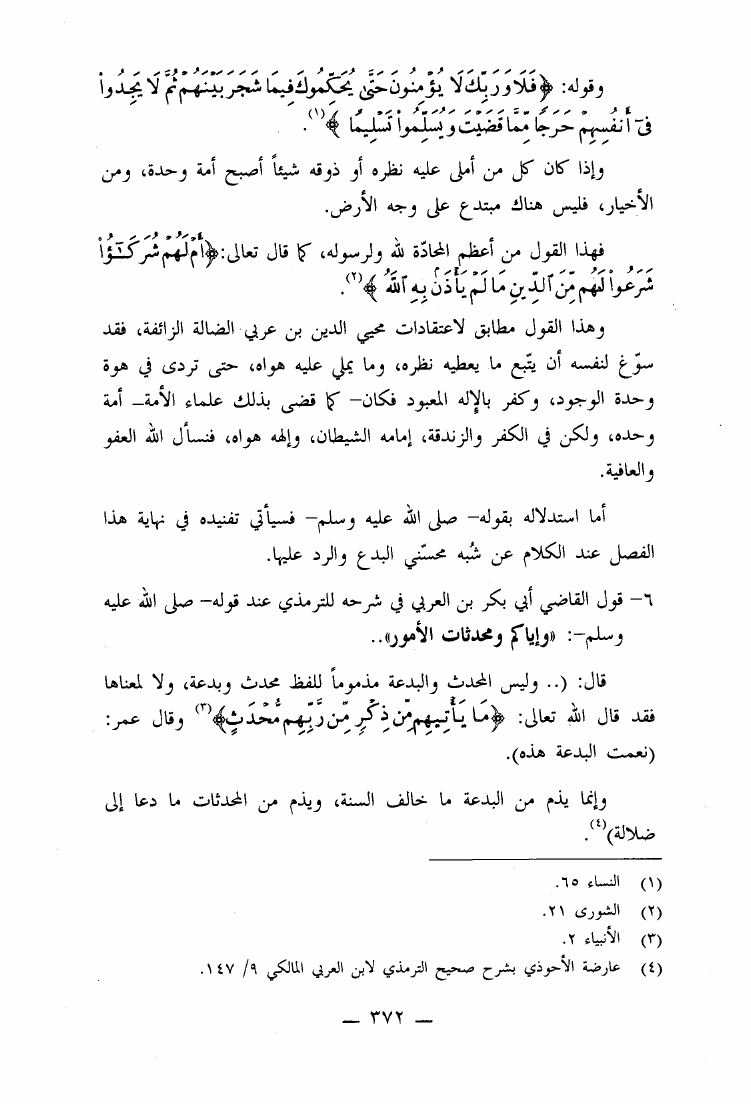 وقوله: ﴿فَلَا وَرَبِّكَ لَا يُؤْمِنُونَ حَتَّىٰ يُحَكِّمُوكَ فِيمَا شَجَرَ بَيْنَهُمْ ثُمَّ لَا يَجِدُوا۟
فِىٓ أَنفُسِهِمْ حَرَجًا مِّمَّا قَضَيْتَ وَيُسَلِّمُوا۟ تَسْلِيمًا ﴾(١).
وإذا كان كل من أملى عليه نظره أو ذوقه شيئاً أصبح أمة وحدة، ومن
الأخيار، فليس هناك مبتدع على وجه الأرض.
فهذا القول من أعظم المحادّة لله ولرسوله، كما قال تعالى: ﴿أَمْ لَهُمْ شُرَكَـٰٓؤُا۟
شَرَعُوا۟ لَهُم مِّنَ ٱلدِّينِ مَا لَمْ يَأْذَنۢ بِهِ ٱللَّهُ ﴾(٢).
وهذا القول مطابق لاعتقادات محيي الدين بن عربي الضالة الزائفة، فقد
سوّغ لنفسه أن يتّبع ما يعطيه نظره، وما يملي عليه هواه، حتى تردى في هوة
وحدة الوجود، وكفر بالإله المعبود فكان– كما قضى بذلك علماء الأمة– أمة
وحده، ولكن في الكفر والزندقة، إمامه الشيطان، وإلهه هواه، فنسأل الله العفو
والعافية.
أما استدلاله بقوله– صلى الله عليه وسلم– فسيأتي تفنيده في نهاية هذا
الفصل عند الكلام عن شُبه محسّني البدع والرد عليها.
٦– قول القاضي أبي بكر بن العربي في شرحه للترمذي عند قوله– صلى الله عليه
وسلم–: «وإياكم ومحدثات الأمور»..
قال: (.. وليس المحدث والبدعة مذموماً للفظ محدث وبدعة، ولا لمعناها
فقد قال الله تعالى: ﴿مَا يَأْتِيهِم مِّن ذِكْرٍ مِّن رَّبِّهِم مُّحْدَثٍ﴾(٣) وقال عمر:
(نعمت البدعة هذه).
وإنما يذم من البدعة ما خالف السنة، ويذم من المحدثات ما دعا إلى
ضلالة)(٤).
(١) النساء ٦٥.
(٢) الشورى ٢١.
(٣) الأنبياء ٢.
(٤) عارضة الأحوذي بشرح صحيح الترمذي لابن العربي المالكي ٩/ ١٤٧.
— ٣٧٢ —